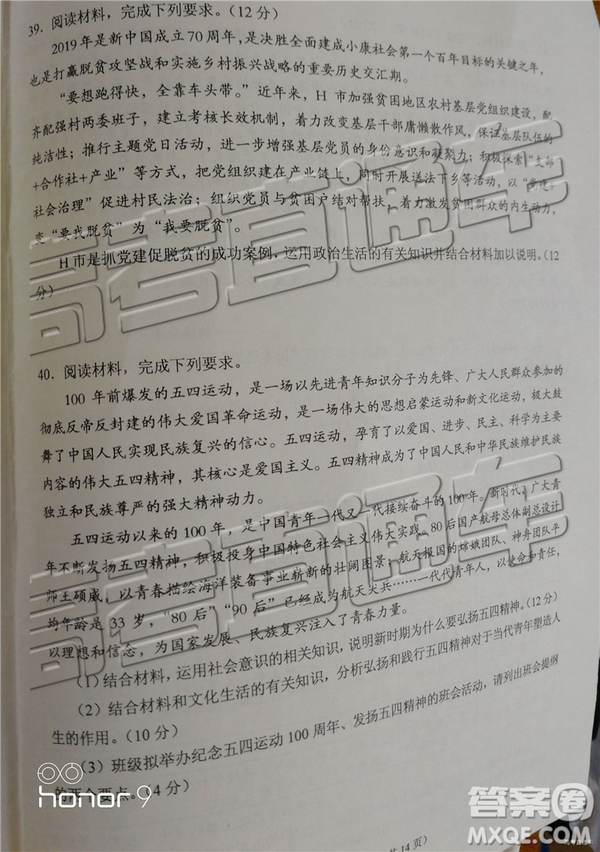 39. 阅读材料，完成下列要求。（12 分）
2019 年是新中国成立 70 周年，是决胜全面建成小康社会第一个百年目标的关键之年，
也是打赢脱贫攻坚战和实施乡村振兴战略的重要历史交汇期。
“要想跑得快，全靠车头带。”近年来，H 市加强贫困地区农村基层党组织建设，配
齐配强村两委班子，建立考核长效机制，着力改变基层干部庸懒散作风，保证基层队伍的
纯洁性；推行主题党日活动，进一步增强基层党员的身份意识和凝聚力；积极探索“支部
+合作社+产业”等方式，把党组织建在产业链上，同时开展送法下乡等活动，以
社会治理”促进村民法治；组织党员与贫困户结对帮扶，着力激发贫困群众的内生动力，
变“要我脱贫”为“我要脱贫”。
H 市是抓党建促脱贫的成功案例，运用政治生活的有关知识并结合材料加以说明。（12
分）
40. 阅读材料，完成下列要求。
100 年前爆发的五四运动，是一场以先进青年知识分子为先锋、广大人民群众参加的
彻底反帝反封建的伟大爱国革命运动，是一场伟大的思想启蒙运动和新文化运动，主要鼓
舞了中国人民实现民族复兴的信心。五四运动，孕育了以爱国、进步、民主、科学为主要
内容的伟大五四精神，其核心是爱国主义。五四精神成为了中国人民和中华民族维护民族
独立和民族尊严的强大精神动力。
五四运动以来的 100 年，是中国青年一代又一代接续奋斗的 100 年。新时代，广大青
年不断发扬五四精神，积极投身中国特色社会主义伟大实践。80 后国产航母总体副总设计
师王硕威，以青春描绘海洋装备事业崭新的壮阔图景；航天报国的嫦娥团队、神舟团队平
均年龄是 33 岁，“80 后”“90 后”已经成为航天尖兵……一代代青年人，以使命和责任，
以理想和信念，为国家发展、民族复兴注入了青春力量。
（1）结合材料，运用社会意识的相关知识，说明新时期为什么要弘扬五四精神。（12 分）
（2）结合材料和文化生活的有关知识，分析弘扬和践行五四精神对于当代青年塑造人
生的作用。（10 分）
（3）班级拟举办纪念五四运动 100 周年、发扬五四精神的班会活动，请列出班会提纲
的两个要点。（4 分）
共 14 页）
高考直通车
高考直通车
honor 9
答案圈
MXQE.COM